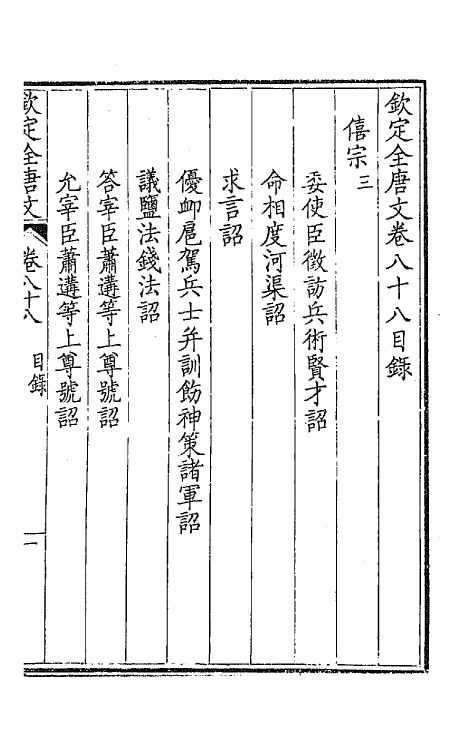 欽定全唐文卷八十八目錄
僖宗三
委使臣徵訪兵術賢才詔
命相度河渠詔
求言詔
優卹扈駕兵士并訓飭神策諸軍詔
議鹽法錢法詔
答宰臣蕭遘等上尊號詔
允宰臣蕭遘等上尊號詔
欽定全唐文 卷八十八 目錄 一